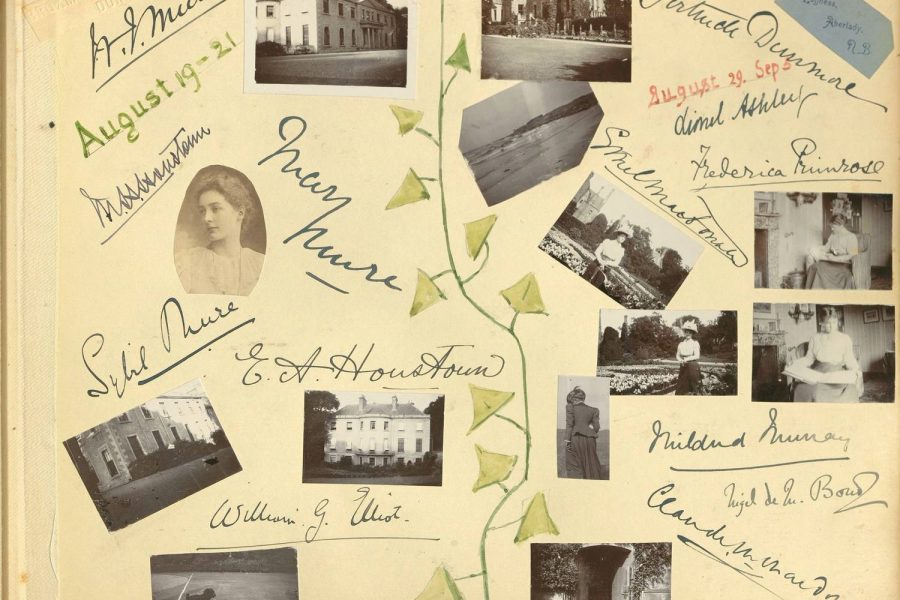 August 19-21
Mary Mure
Sybil Mure
E. A. Houstoun
William. G. Elliot.
Gertrude Dunmore
Aberlady.
N.B
August 29. Sep 5
Lionel Ashley
Frederica Primrose
Mildred Murray
Nigel de M. Bond
Claude